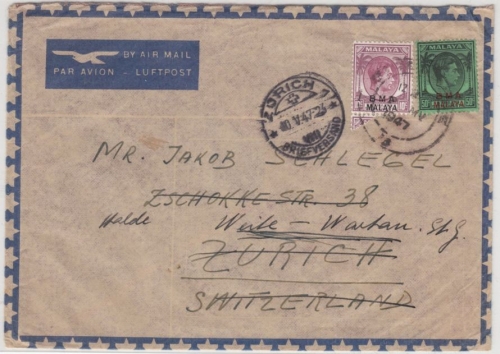 BY AIR MAIL
PAR AVION - LUFTPOST
MALAYA
MALAYA
BMA
MALAYA
BMA
MALAYA
ZÜRICH 1
BRIEFVERSAND
MR. JAKOB SCHLEGEL
ZSCHOKKE STR. 38
ZURICH
SWITZERLAND